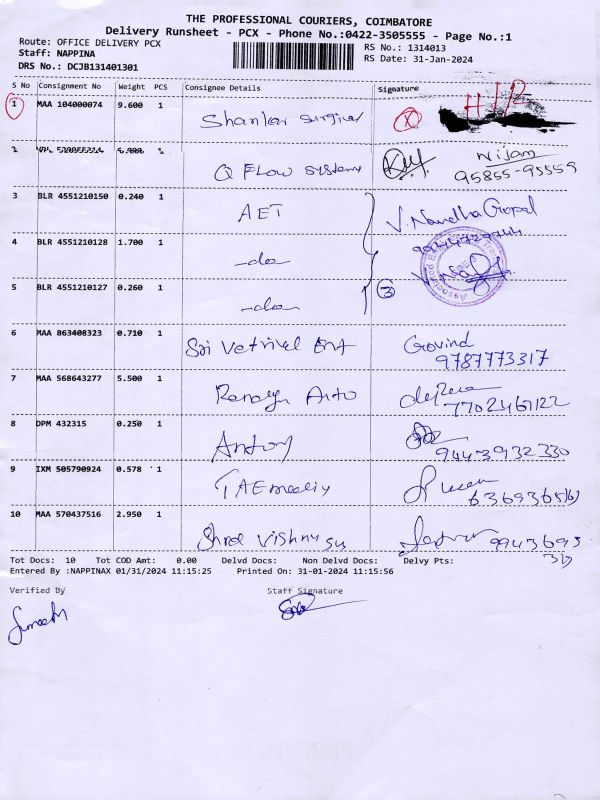 THE PROFESSIONAL COURIERS, COIMBATORE
Delivery Runsheet - PCX - Phone No.:0422-3505555 - Page No.:1
Route: OFFICE DELIVERY PCX
Staff: NAPPINA
DRS No.: DCJB131401301
RS No.: 1314013
RS Date: 31-Jan-2024
S No Consignment No Weight PCS Consignee Details Signature
1 MAA 104000074 9.600 1 Shankar Surgical H/R
2 1 Q FLOW Systems Nijam
95855-95555
3 BLR 4551210150 0.240 1 AET V. Nandha Gopal
4 BLR 4551210128 1.700 1 -do-
5 BLR 4551210127 0.260 1 -do- 3
6 MAA 863408323 0.710 1 Sri Vetrivel Ent Govind
9787773317
7 MAA 568643277 5.500 1 Auto
7702461122
8 DPM 432315 0.250 1 Antony
9443932330
9 IXM 505790924 0.578 1
10 MAA 570437516 2.950 1 Shree Vishnu 9943693
Tot Docs: 10 Tot COD Amt: 0.00 Delvd Docs: Non Delvd Docs: Delvy Pts:
Entered By :NAPPINAX 01/31/2024 11:15:25 Printed On: 31-01-2024 11:15:56
Verified By Staff Signature